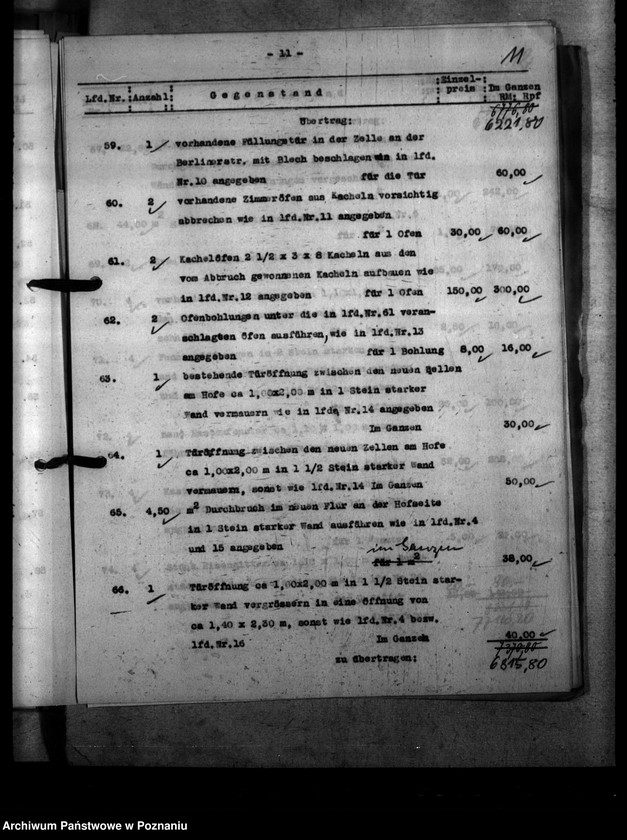 - 11 -
11
Lfd.Nr. Anzahl: Gegenstand Einzelpreis Im Ganzen RM: Rpf
Übertrag:
6221,80
59. 1 vorhandene Füllungstür in der Zelle an der
Berlinerstr. mit Blech beschlagen in lfd.
Nr.10 angegeben für die Tür 60,00
60. 2 vorhandene Zimmeröfen aus Kacheln vorsichtig
abbrechen wie in lfd.Nr.11 angegeben
für 1 Ofen 30,00 60,00
61. 2 Kachelöfen 2 1/2 x 3 x 8 Kacheln aus den
vom Abbruch gewonnenen Kacheln aufbauen wie
in lfd.Nr.12 angegeben für 1 Ofen 150,00 300,00
62. 2 Ofenbohlungen unter die in lfd.Nr.61 veran-
schlagten Öfen ausführen, wie in lfd.Nr.13
angegeben für 1 Bohlung 8,00 16,00
63. 1 bestehende Türöffnung zwischen den neuen Zellen
am Hofe ca 1,00x2,00 m in 1 Stein starker
Wand vermauern wie in lfd. Nr.14 angegeben
Im Ganzen 30,00
64. 1 Türöffnung zwischen den neuen Zellen am Hofe
ca 1,00x2,00 m in 1 1/2 Stein starker Wand
vermauern, sonst wie lfd.Nr.14 Im Ganzen 50,00
65. 4,50 m² Durchbruch im neuen Flur an der Hofseite
in 1 Stein starker Wand ausführen wie in lfd.Nr.4
und 15 angegeben im Ganzen
für 1 m² 38,00
66. 1 Türöffnung ca 1,00x2,00 m in 1 1/2 Stein star-
ker Wand vergrössern in eine Öffnung von
ca 1,40 x 2,30 m, sonst wie lfd.Nr.4 bezw.
lfd.Nr.16 Im Ganzen 40,00
zu übertragen:
6815,80
Archiwum Państwowe w Poznaniu